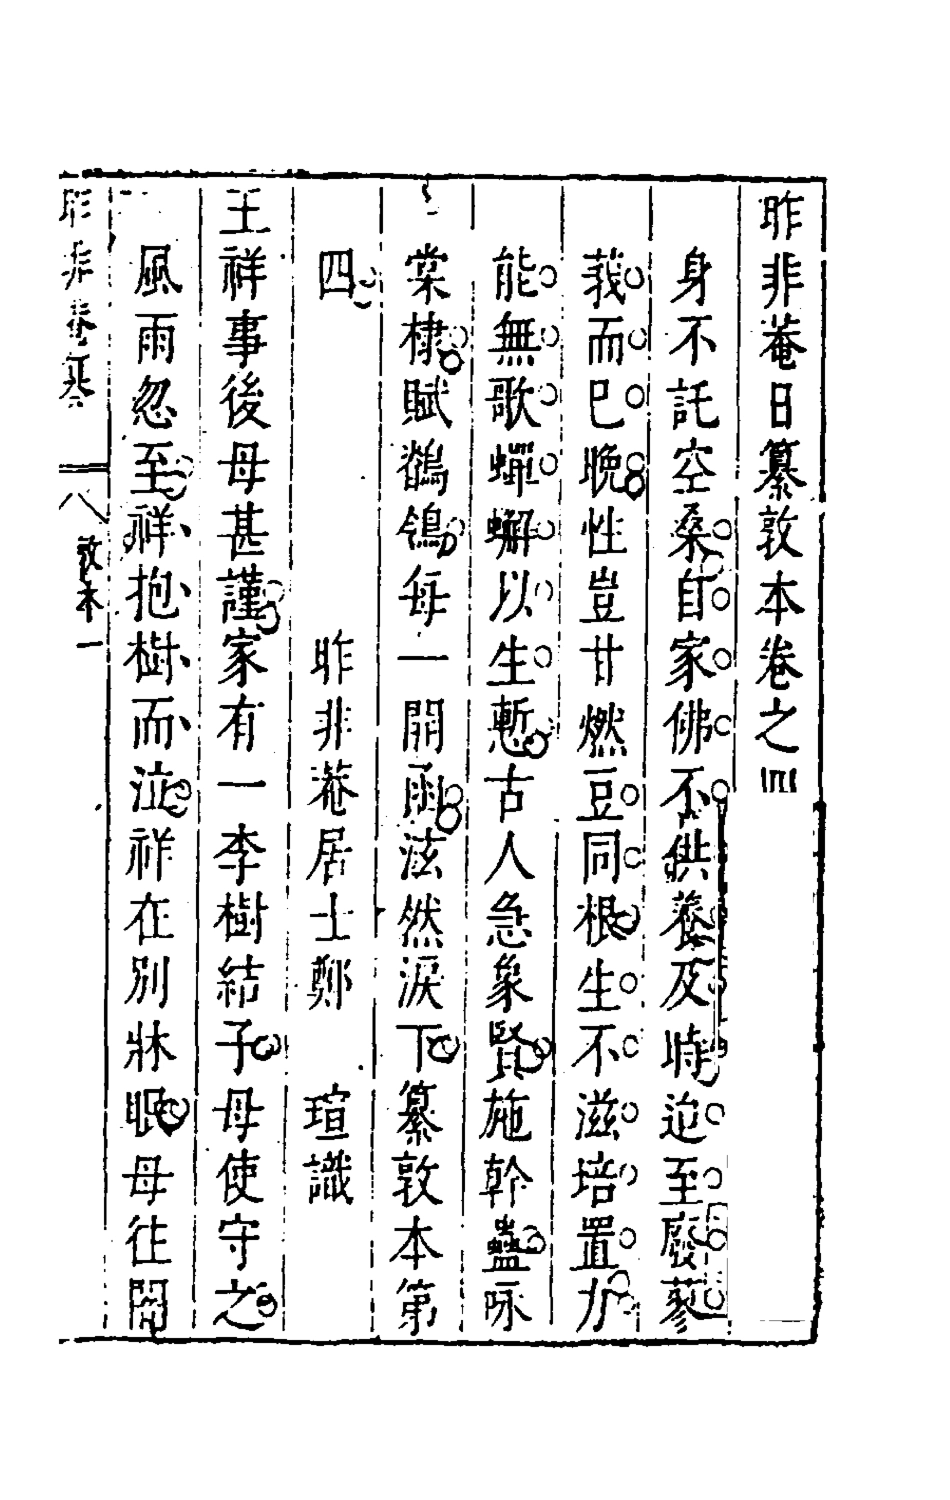 昨非菴日纂敦本卷之四
身不託空桑自家佛不供養及時迨至廢蓼
莪而已晚性豈甘燃豆同根生不滋培置力
能無歌蟬蠏以生慙古人急象賢施幹蠱咏
棠棣賦鶺鴒每一開函泫然淚下纂敦本第
四
昨非菴居士鄭 瑄識
王祥事後母甚謹家有一李樹結子母使守之
風雨忽至祥抱樹而泣祥在別牀眠母往闇
昨非菴纂 八 敦本一